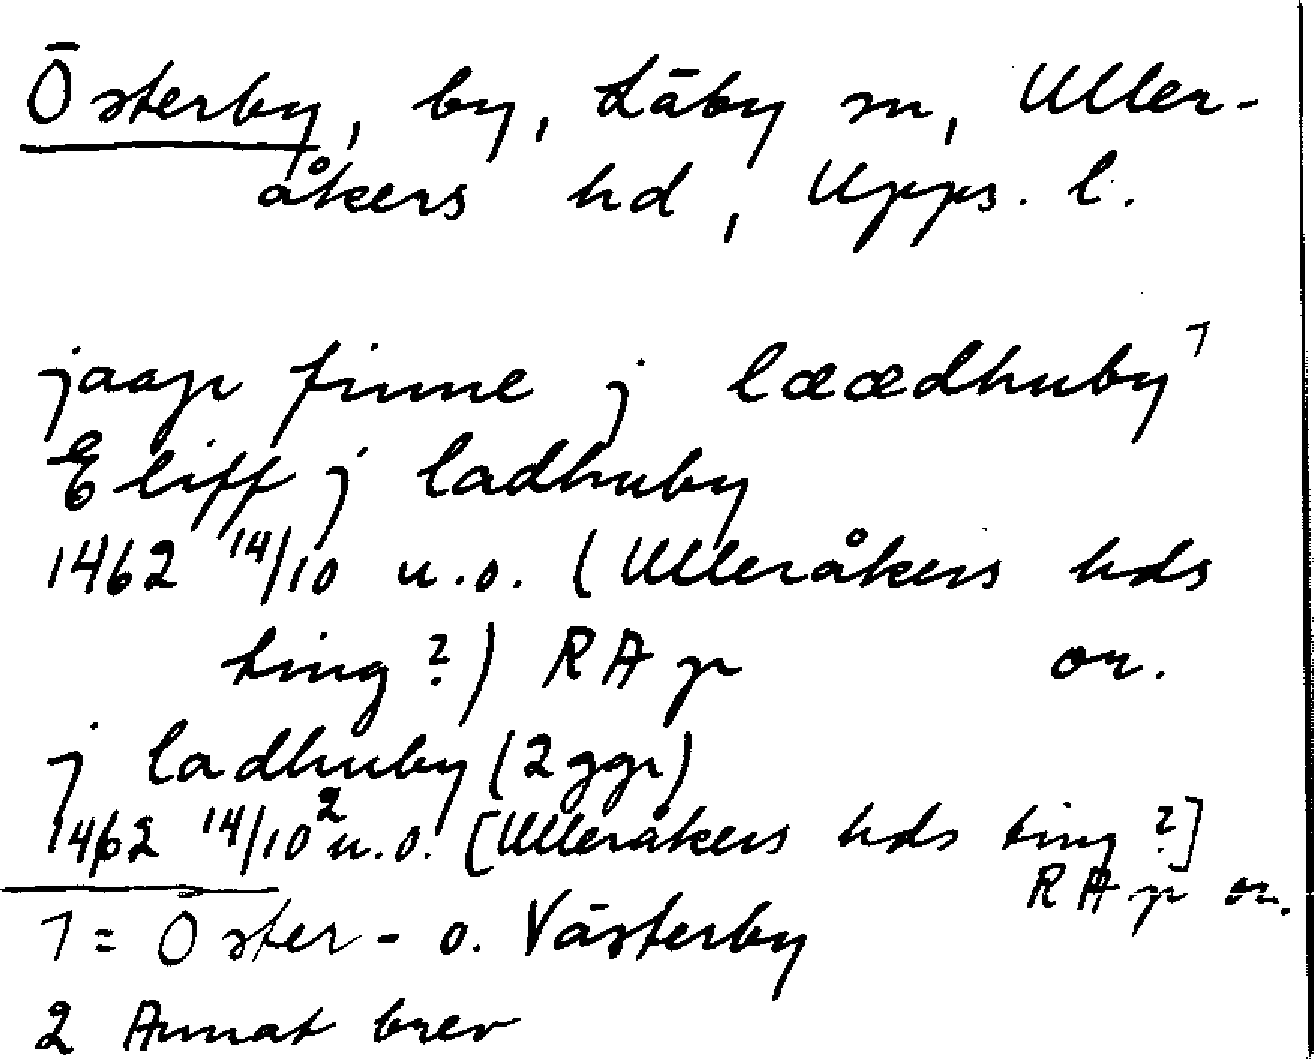 Österby, by, Läby sn, Uller-
åkers hd, Upps. l.
jaap finne j lææedhuby 1
Eliff j ladhuby
1462 14/10 u.o. (Ulleråkers hds
ting?) RA p or.
j ladhuby (2 ggr)
1462 14/10 2 u.o. [Ulleråkers hds ting?]
RA p or.
1 = Öster- o. Västerby
2 Annat brev